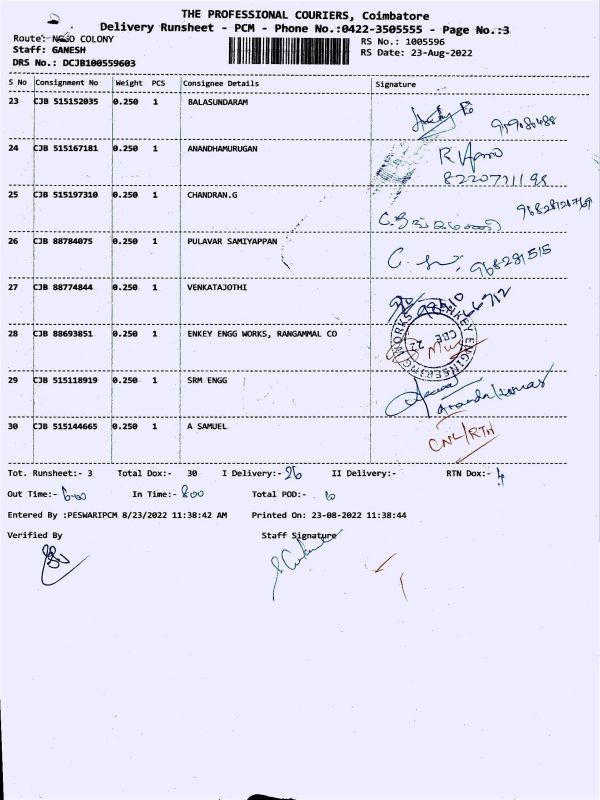 THE PROFESSIONAL COURIERS, Coimbatore
Delivery Runsheet - PCM - Phone No.:0422-3505555 - Page No.:3
Route: NGGO COLONY
RS No.: 1005596
Staff: GANESH
RS Date: 23-Aug-2022
DRS No.: DCJB100559603
S No Consignment No Weight PCS Consignee Details Signature
23 CJB 515152035 0.250 1 BALASUNDARAM
24 CJB 515167181 0.250 1 ANANDHAMURUGAN
25 CJB 515197310 0.250 1 CHANDRAN.G
26 CJB 88784075 0.250 1 PULAVAR SAMIYAPPAN
968281515
27 CJB 88774844 0.250 1 VENKATAJOTHI
28 CJB 88693851 0.250 1 ENKEY ENGG WORKS, RANGAMMAL CO
ENKEY ENGINEERING WORKS
CBE 22
29 CJB 515118919 0.250 1 SRM ENGG
Anandakumar
30 CJB 515144665 0.250 1 A SAMUEL
CNL/RTN
Tot. Runsheet:- 3 Total Dox:- 30 I Delivery:- 26 II Delivery:- RTN Dox:- 4
Out Time:- 6.00 In Time:- 800 Total POD:- 10
Entered By :PESWARIPCM 8/23/2022 11:38:42 AM Printed On: 23-08-2022 11:38:44
Verified By Staff Signature